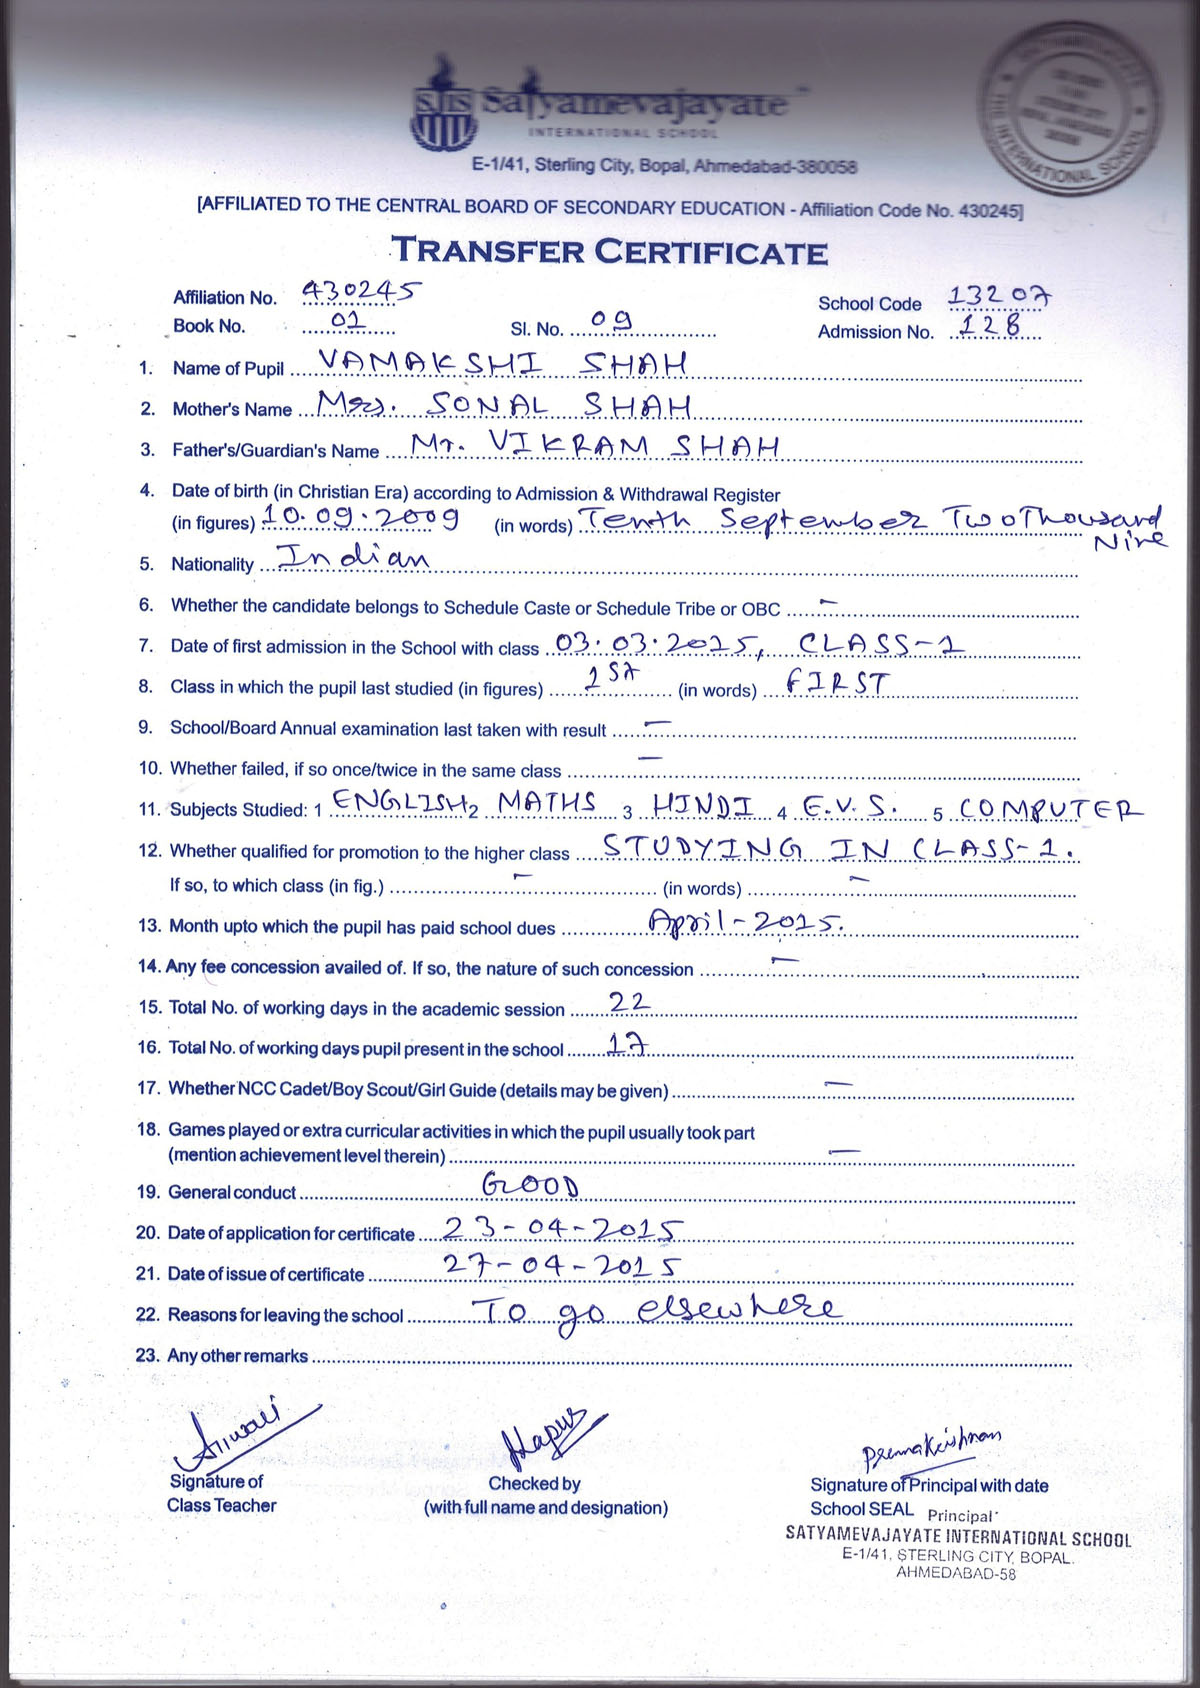 SIS Satyamevajayate
INTERNATIONAL SCHOOL
E-1/41, Sterling City, Bopal, Ahmedabad-380058
THE INTERNATIONAL SCHOOL
[AFFILIATED TO THE CENTRAL BOARD OF SECONDARY EDUCATION - Affiliation Code No. 430245]
TRANSFER CERTIFICATE
Affiliation No. 430245 School Code 13207
Book No. 01 Sl. No. 09 Admission No. 128
1. Name of Pupil VAMAKSHI SHAH
2. Mother's Name Mrs. SONAL SHAH
3. Father's/Guardian's Name Mr. VIKRAM SHAH
4. Date of birth (in Christian Era) according to Admission & Withdrawal Register
(in figures) 10.09.2009 (in words) Tenth September Two Thousand
Nine
5. Nationality Indian
6. Whether the candidate belongs to Schedule Caste or Schedule Tribe or OBC –
7. Date of first admission in the School with class 03.03.2015, CLASS-1
8. Class in which the pupil last studied (in figures) 1st (in words) FIRST
9. School/Board Annual examination last taken with result –
10. Whether failed, if so once/twice in the same class –
11. Subjects Studied: 1 ENGLISH 2 MATHS 3 HINDI 4 E.V.S. 5 COMPUTER
12. Whether qualified for promotion to the higher class STUDYING IN CLASS-1.
If so, to which class (in fig.) – (in words) –
13. Month upto which the pupil has paid school dues April-2015.
14. Any fee concession availed of. If so, the nature of such concession –
15. Total No. of working days in the academic session 22
16. Total No. of working days pupil present in the school 17
17. Whether NCC Cadet/Boy Scout/Girl Guide (details may be given) –
18. Games played or extra curricular activities in which the pupil usually took part
(mention achievement level therein) –
19. General conduct GOOD
20. Date of application for certificate 23-04-2015
21. Date of issue of certificate 27-04-2015
22. Reasons for leaving the school To go elsewhere
23. Any other remarks
PremaKrishnan
Signature of Checked by Signature of Principal with date
Class Teacher (with full name and designation) School SEAL Principal
SATYAMEVAJAYATE INTERNATIONAL SCHOOL
E-1/41, STERLING CITY, BOPAL.
AHMEDABAD-58